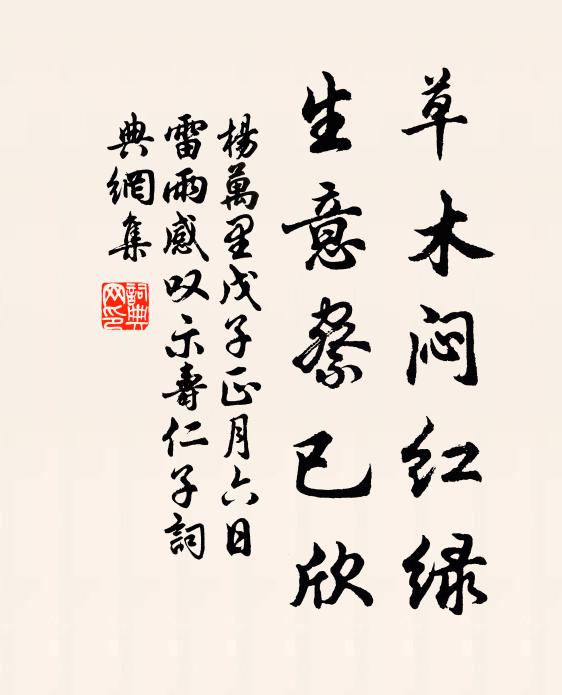 草木闷红绿
生意察已欣
楊萬里戊子正月六日
雷雨感叹示壽仁子詞
典網集
詞典
网印